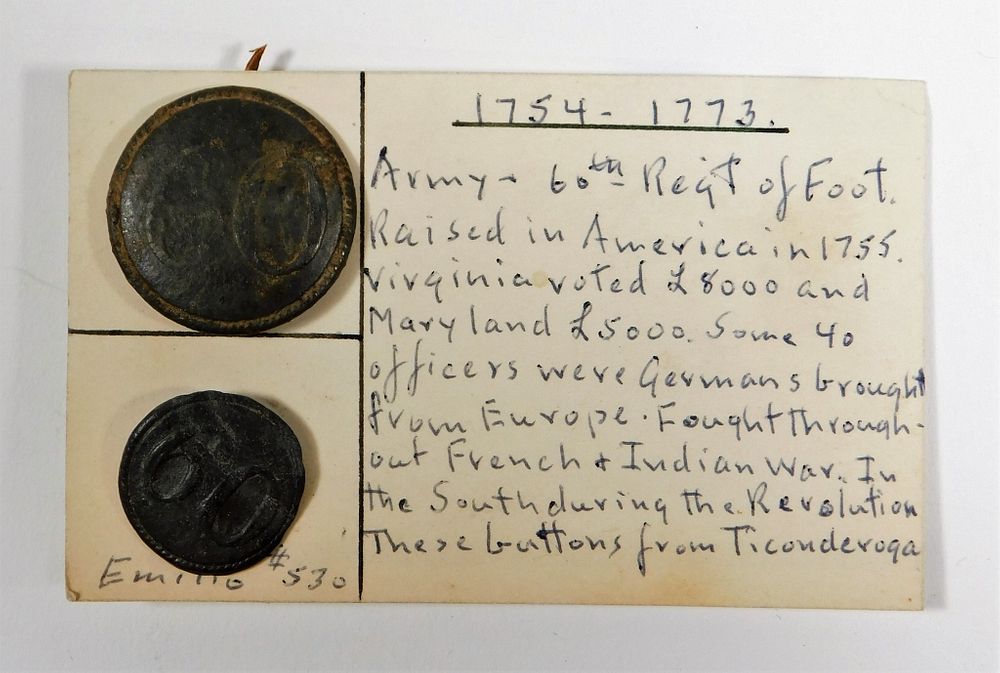 1754 - 1773.
Army - 60th Regt of Foot.
Raised in America in 1755.
Virginia voted £8000 and
Maryland £5000. Some 40
officers were Germans brought
from Europe. Fought through-
out French & Indian War. In
the South during the Revolution
These buttons from Ticonderoga
60
60
Emilio #530